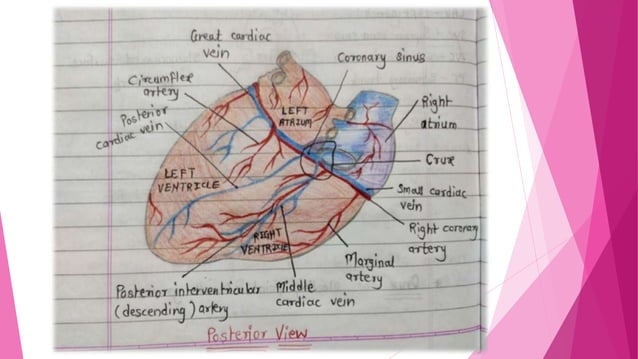 Great cardiac
vein
Coronary Sinus
Circumflex
artery
Posterior
cardiac vein
LEFT
ATRIUM
Right
atrium
Crux
LEFT
VENTRICLE
Small cardiac
vein
Right coronary
artery
RIGHT
VENTRICLE
Marginal
artery
Posterior interventricular
(descending) artery
Middle
cardiac vein
Posterior View